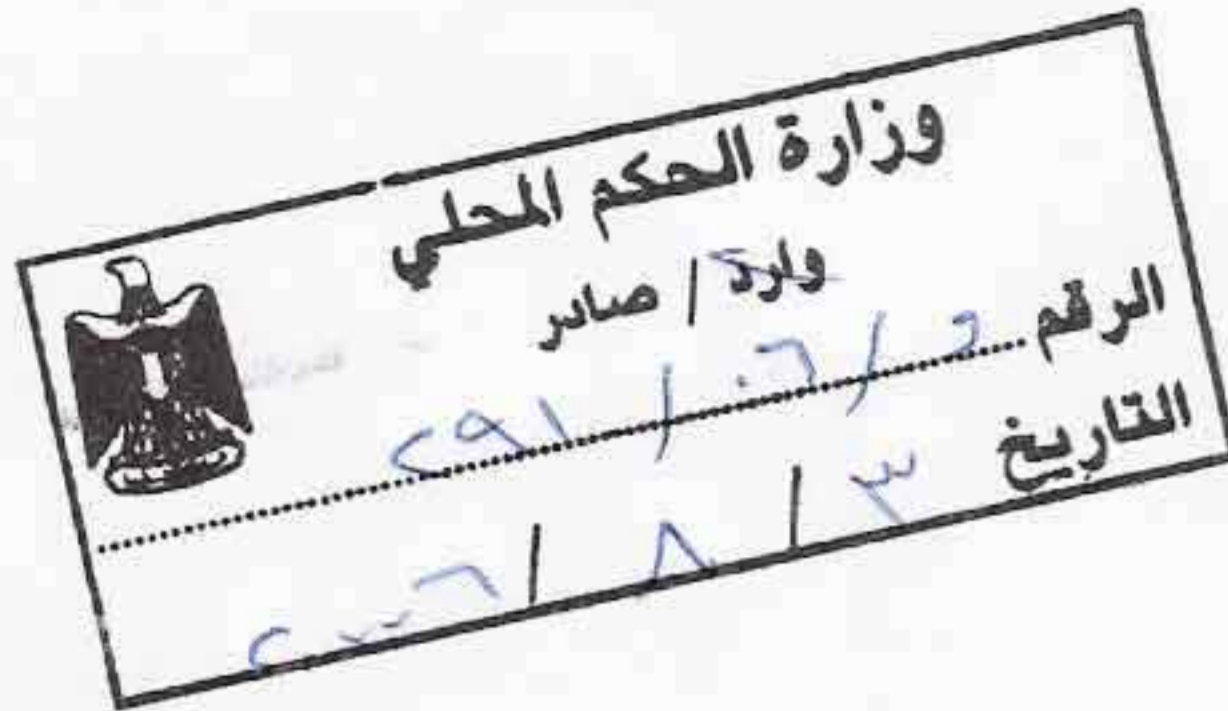 وزارة الحكم المحلي
وارد / صادر
الرقم و / ٠٦ / ٢٩١
التاريخ ٣ / ٨ / ٢٠٠٦